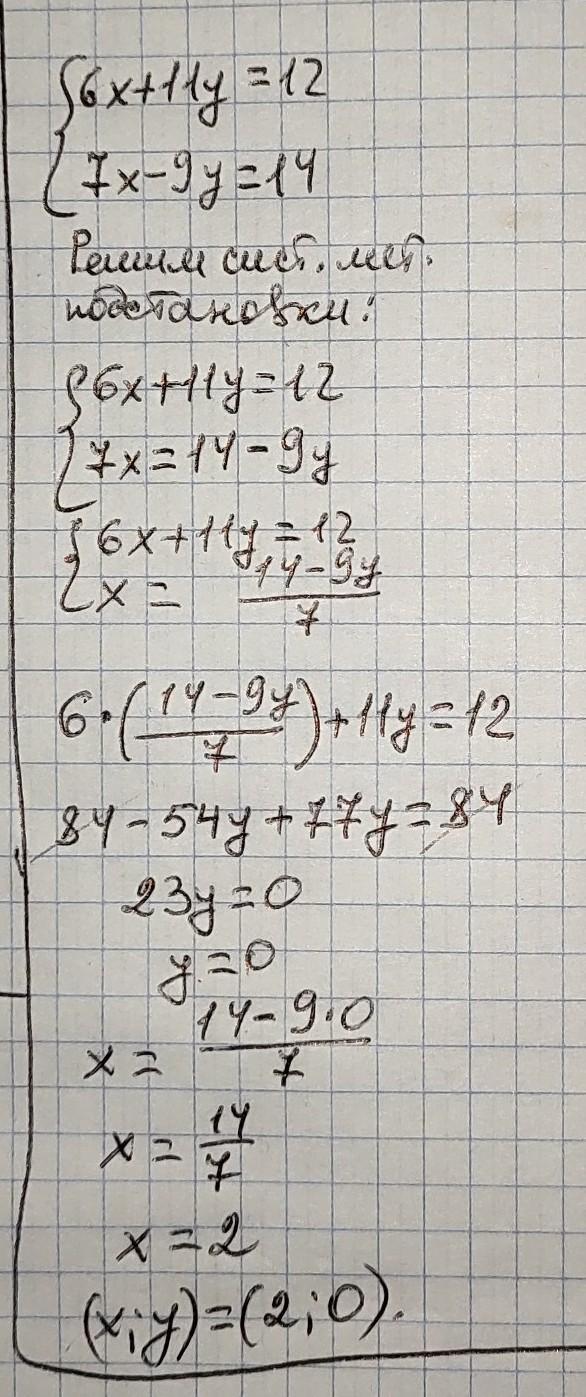 {6x+11y=12
7x-9y=14
Решим сист. мет.
подстановки:
{6x+11y=12
7x=14-9y
{6x+11y=12
x= (14-9y)/7
6·((14-9y)/7)+11y=12
84-54y+77y=84
23y=0
y=0
x= (14-9·0)/7
x= 14/7
x=2
(x;y)=(2;0).